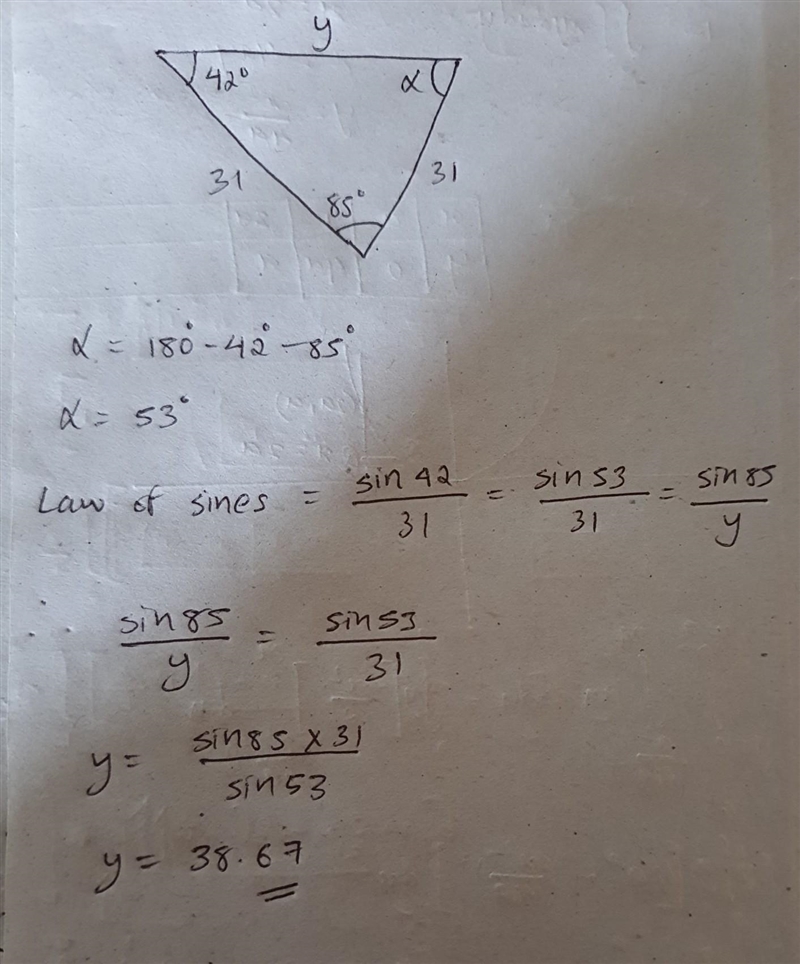 y
42° α
31 31
85°
α = 180° - 42° - 85°
α = 53°
Law of sines = sin 42 / 31 = sin 53 / 31 = sin 85 / y
sin 85 / y = sin 53 / 31
y = sin 85 × 31 / sin 53
y = 38.67